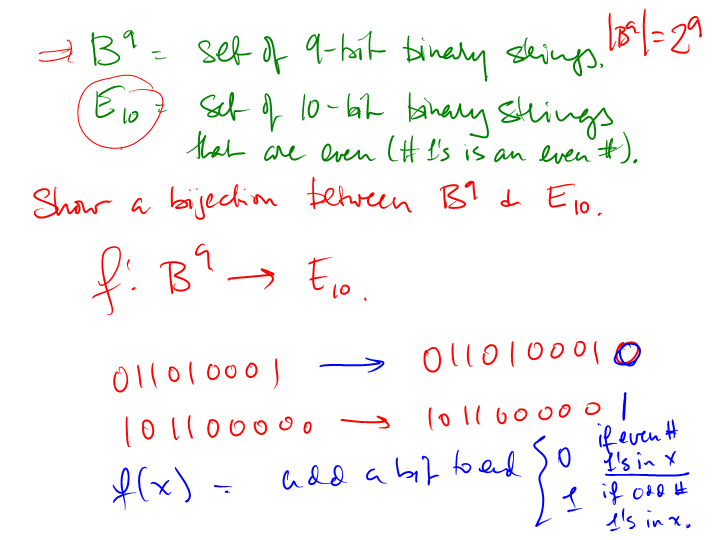 ⇒ B⁹ = set of 9-bit binary strings. |B⁹| = 2⁹
E₁₀ = set of 10-bit binary strings
that are even (# 1's is an even #).
Show a bijection between B⁹ & E₁₀.
f: B⁹ → E₁₀.
011010001 → 0110100010
101100000 → 1011000001
f(x) = add a bit to end { 0 if even # 1's in x
1 if odd # 1's in x.